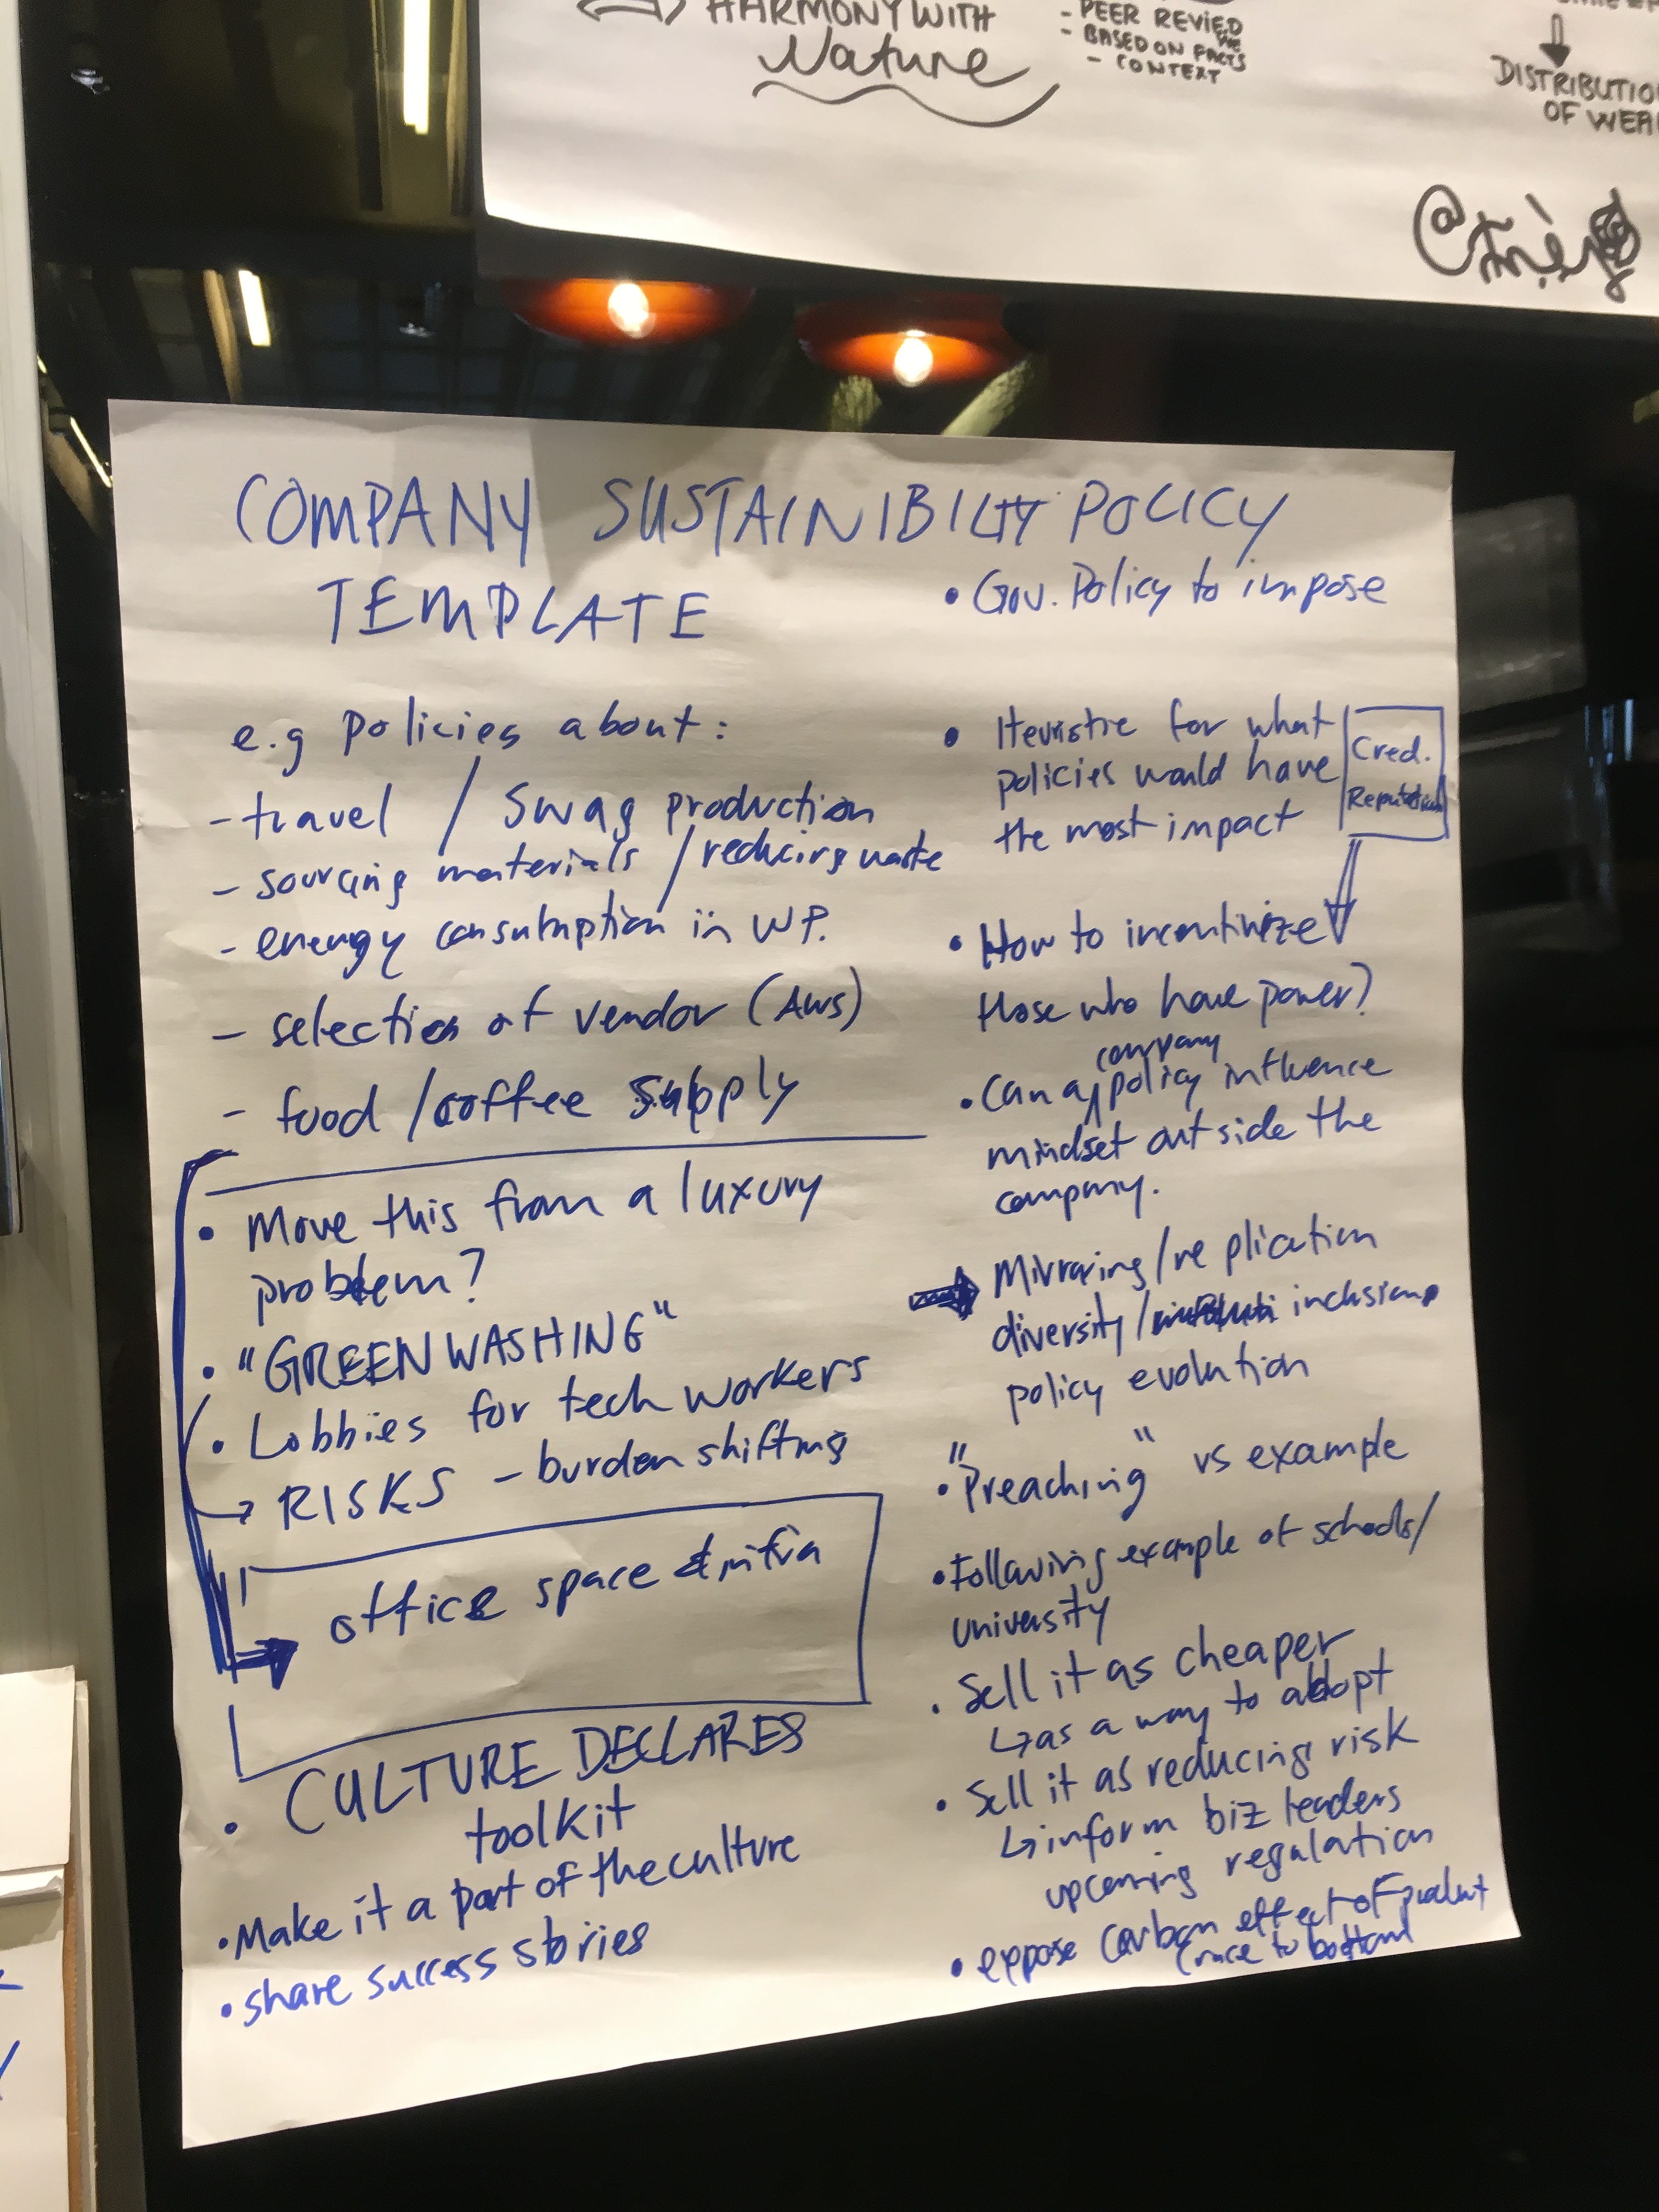 HARMONY WITH
Nature
- PEER REVIED
- BASED ON FACTS
- CONTEXT
DISTRIBUTIO
OF WEA
COMPANY SUSTAINIBILITY POLICY
TEMPLATE
e.g policies about:
- travel / swag production
- sourcing materials / reducing waste
- energy consumption in WP.
- selection of vendor (AWS)
- food / coffee supply
• Move this from a luxury
problem?
• "GREENWASHING"
• Lobbies for tech workers
→ RISKS - burden shifting
→ office space & infra
• CULTURE DECLARES
toolkit
• Make it a part of the culture
• share success stories
• Gov. Policy to impose
• Heuristic for what
policies would have
the most impact
Cred.
Reputation
• How to incentivize
those who have power?
• Can a company policy influence
mindset outside the
company.
→ Mirroring/replication
diversity/ inclusions
policy evolution
• "Preaching" vs example
• Following example of schools/
university
• Sell it as cheaper
↳ as a way to adopt
• Sell it as reducing risk
↳ inform biz leaders
upcoming regulation
• expose carbon effect of product
(race to bottom